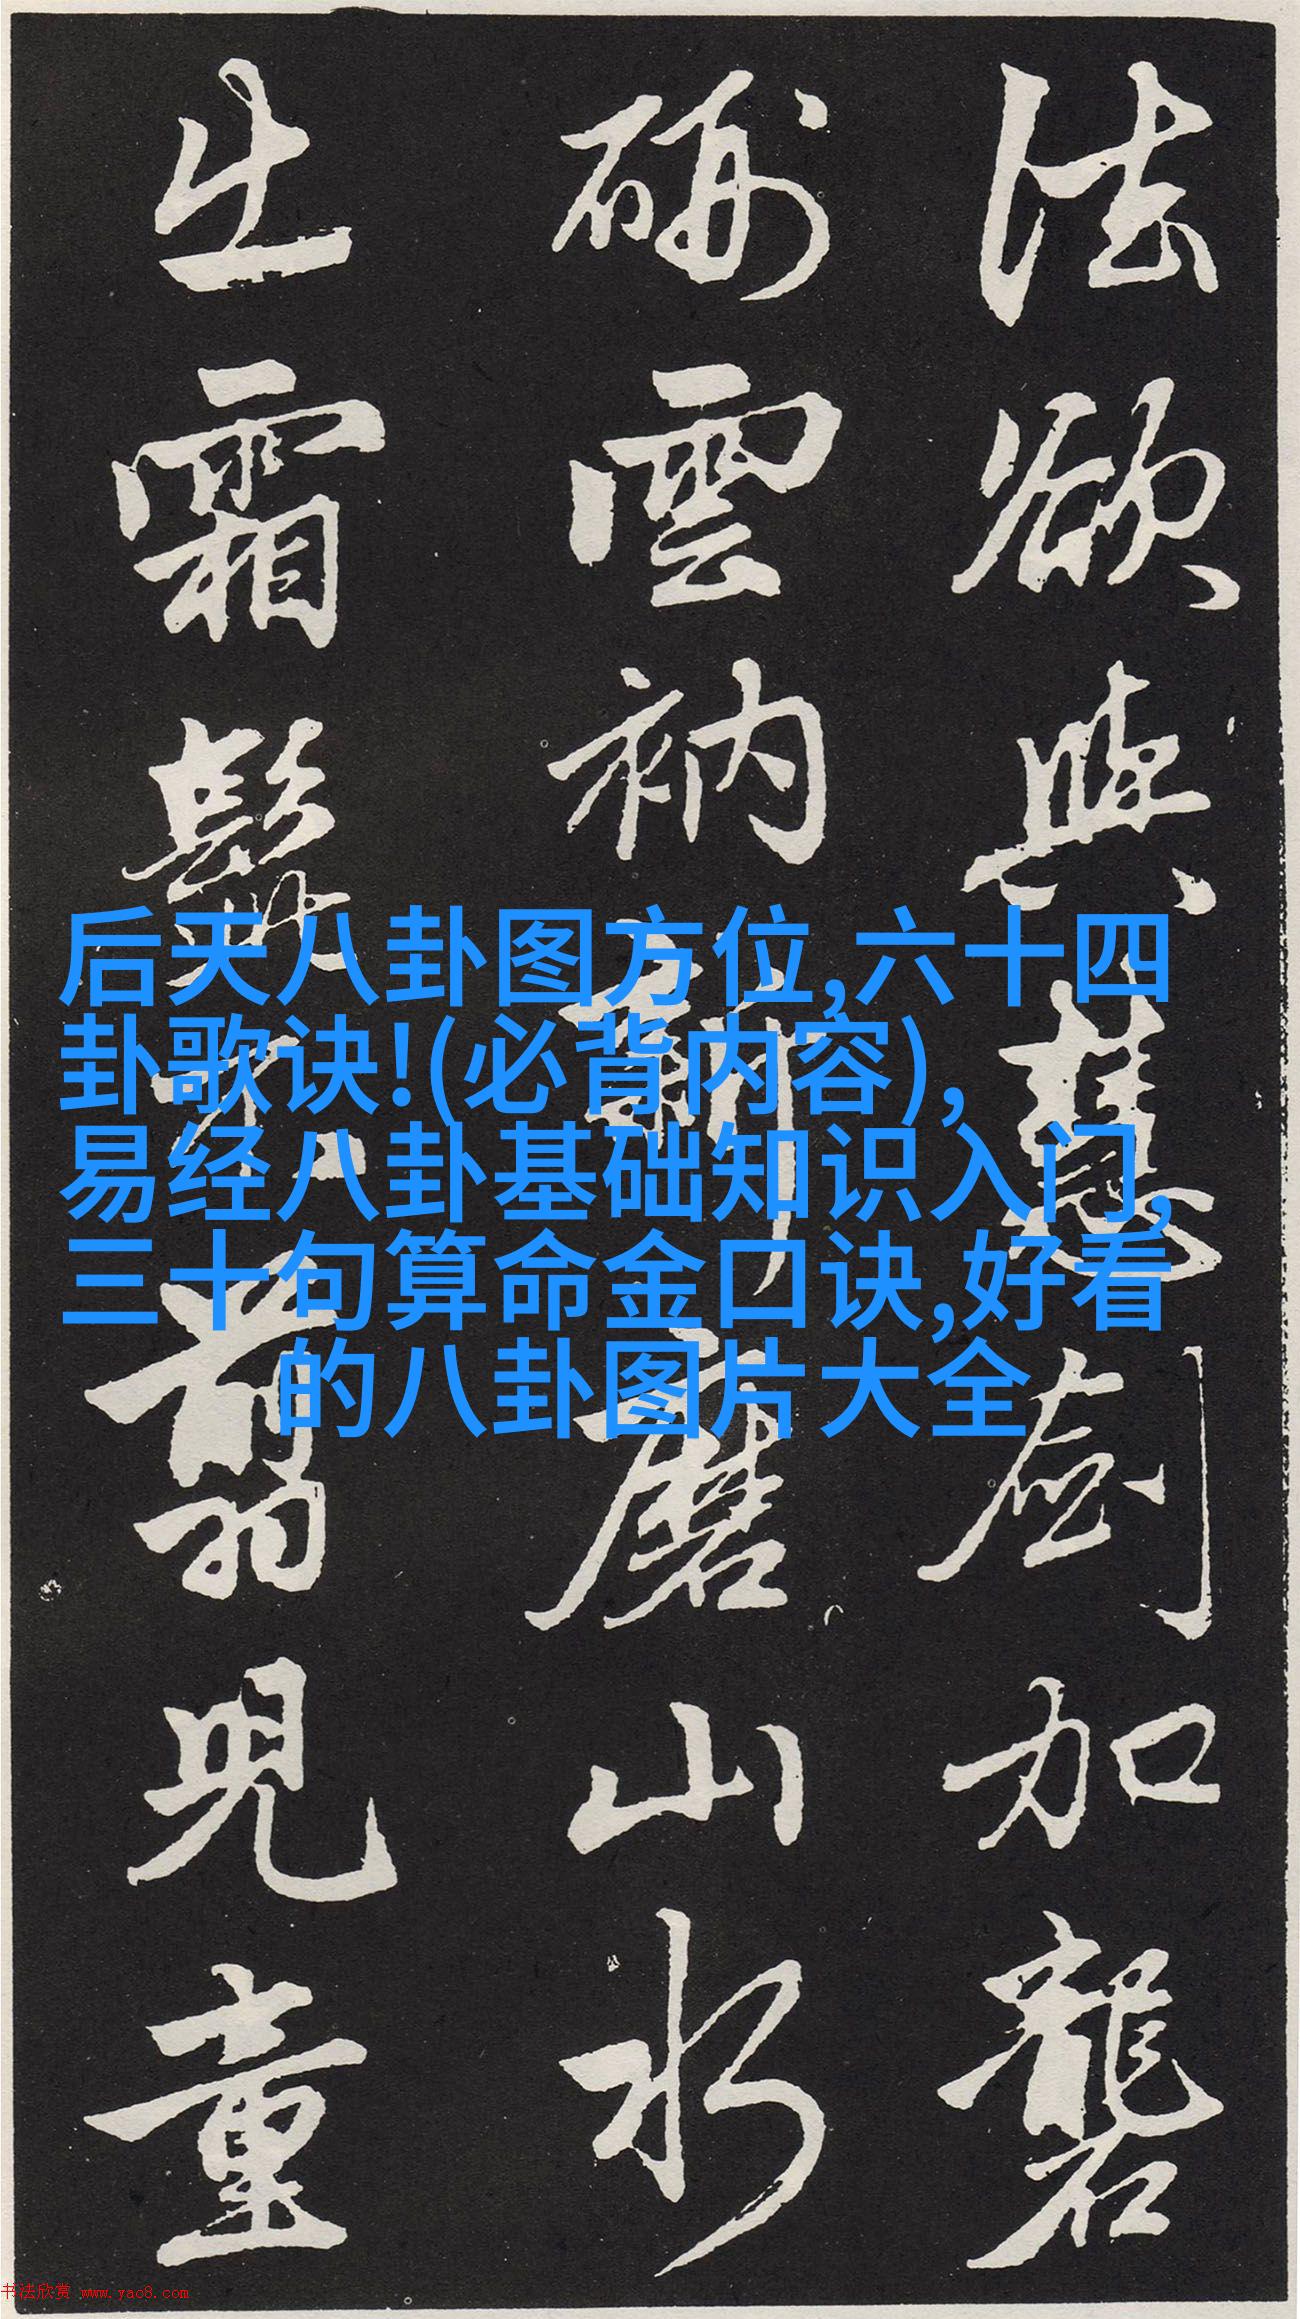 法欲與慧劍加礱
硎雲衲新磨山水
出霜髭不翦兒童
后天八卦图方位,六十四
卦歌诀!(必背内容),
易经八卦基础知识入门,
三十句算命金口诀,好看
的八卦图片大全
书法欣赏 www.yac8.com